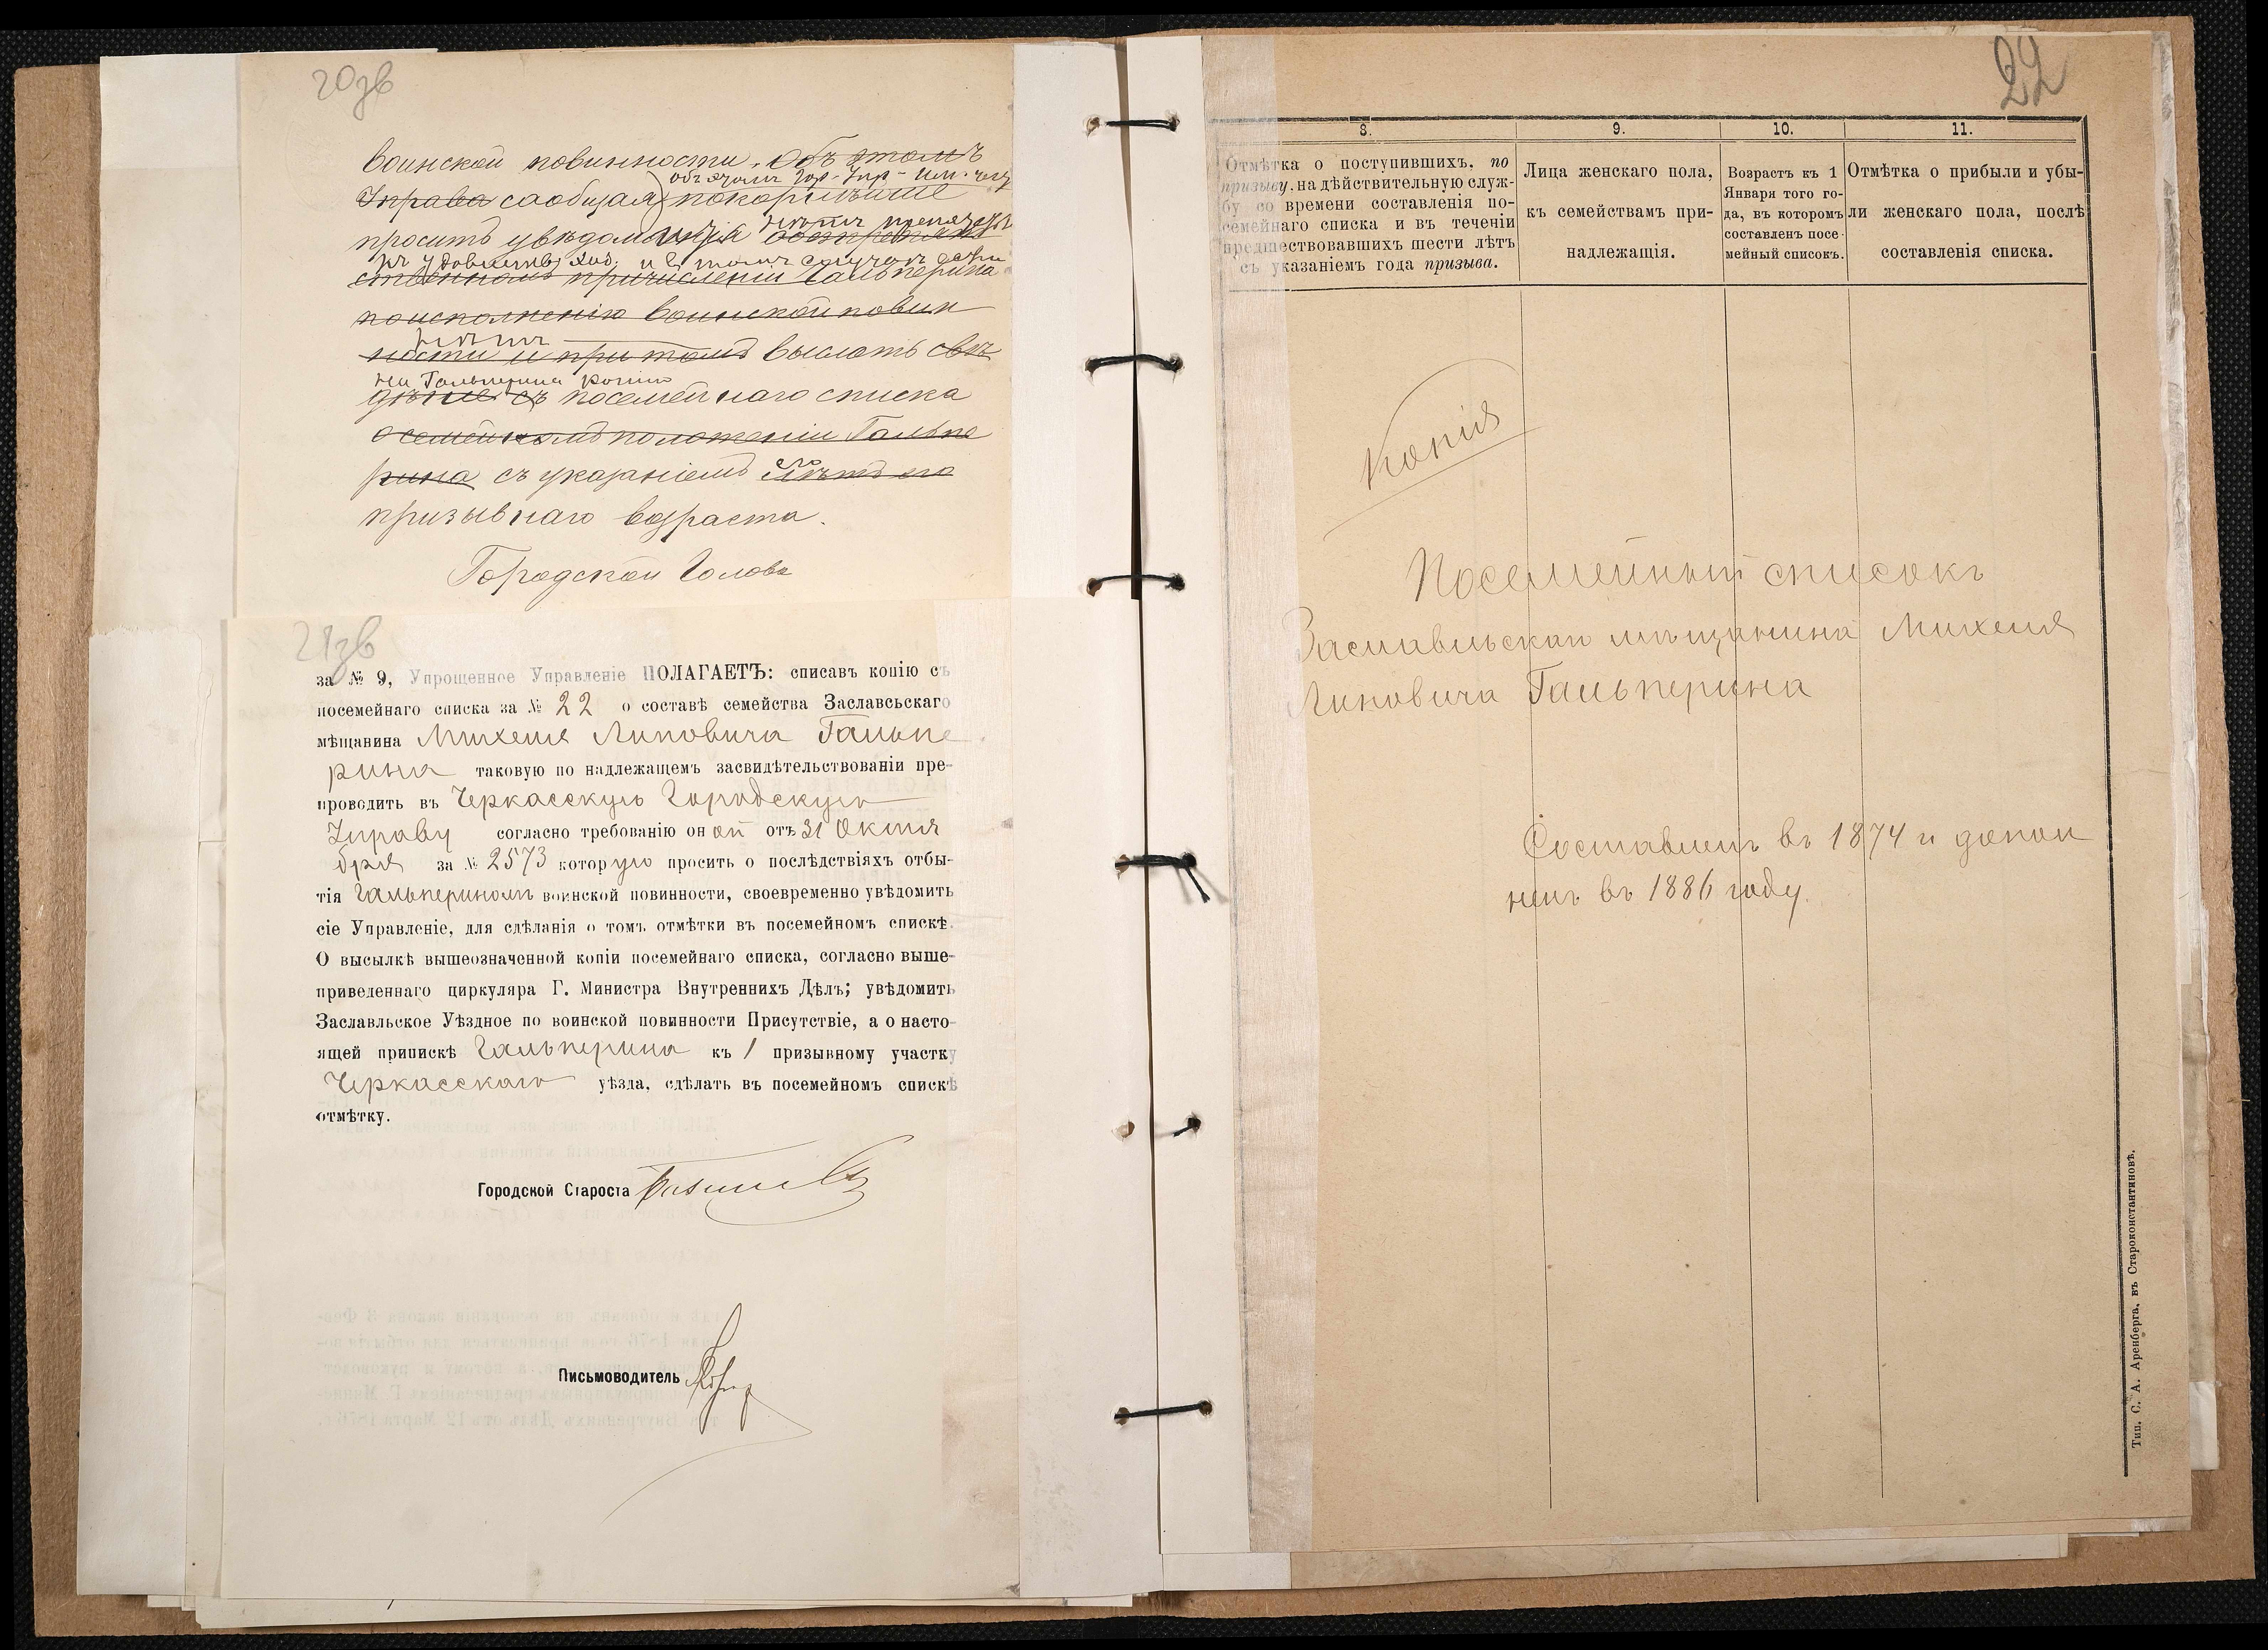 20зв
воинской повинности. Объ этомъ
объ этомъ Гор. Упр.
Управа сообщая покорнѣйше
нѣтъ препятств
просить увѣдомленія
къ удовлетв. ход. и въ томъ случаѣ
ственномъ причисленіи Гальперина
по исполненію воинской повин
ности и при томъ выслать свѣ
на Гальперина копію
дѣніе съ посемейнаго списка
о семейномъ положеніи Гальпе
рина съ указаніемъ лѣтъ его
призывнаго возраста.
Городской Голова
21зв
за № 9, Упрощенное Управленіе ПОЛАГАЕТЪ: списавъ копію съ
посемейнаго списка за № 22 о составѣ семейства Заславсьскаго
мѣщанина Михеля Липовича Гальпе
рина таковую по надлежащемъ засвидѣтельствованіи пре-
проводить въ Черкасскую Городскую
Управу согласно требованію он ой отъ 31 Октя
бря за № 2573 котор ую просить о послѣдствіяхъ отбы-
тія Гальпериномъ воинской повинности, своевременно увѣдомить
сіе Управленіе, для сдѣланія о томъ отмѣтки въ посемейномъ спискѣ.
О высылкѣ вышеозначенной копіи посемейнаго списка, согласно выше-
приведеннаго циркуляра Г. Министра Внутреннихъ Дѣлъ; увѣдомить
Заславльское Уѣздное по воинской повинности Присутствіе, а о насто-
ящей припискѣ Гальперина къ 1 призывному участку
Черкасскаго уѣзда, сдѣлать въ посемейномъ спискѣ
отмѣтку.
Городской Староста
Письмоводитель
22
8. 9. 10. 11.
Отмѣтка о поступившихъ, по
призыву, на дѣйствительную служ-
бу со времени составленія по-
семейнаго списка и въ теченіи
предшествовавшихъ шести лѣтъ
съ указаніемъ года призыва.
Лица женскаго пола,
къ семействамъ при-
надлежащія.
Возрастъ къ 1
Января того го-
да, въ которомъ
составленъ посе-
мейный списокъ.
Отмѣтка о прибыли и убы-
ли женскаго пола, послѣ
составленія списка.
Копія
Посемейный списокъ
Заславльскаго мѣщанина Михеля
Липовича Гальперина
Составленъ въ 1874 и допол
ненъ въ 1886 году.
Тип. С. А. Аренберга, въ Староконстантиновѣ.